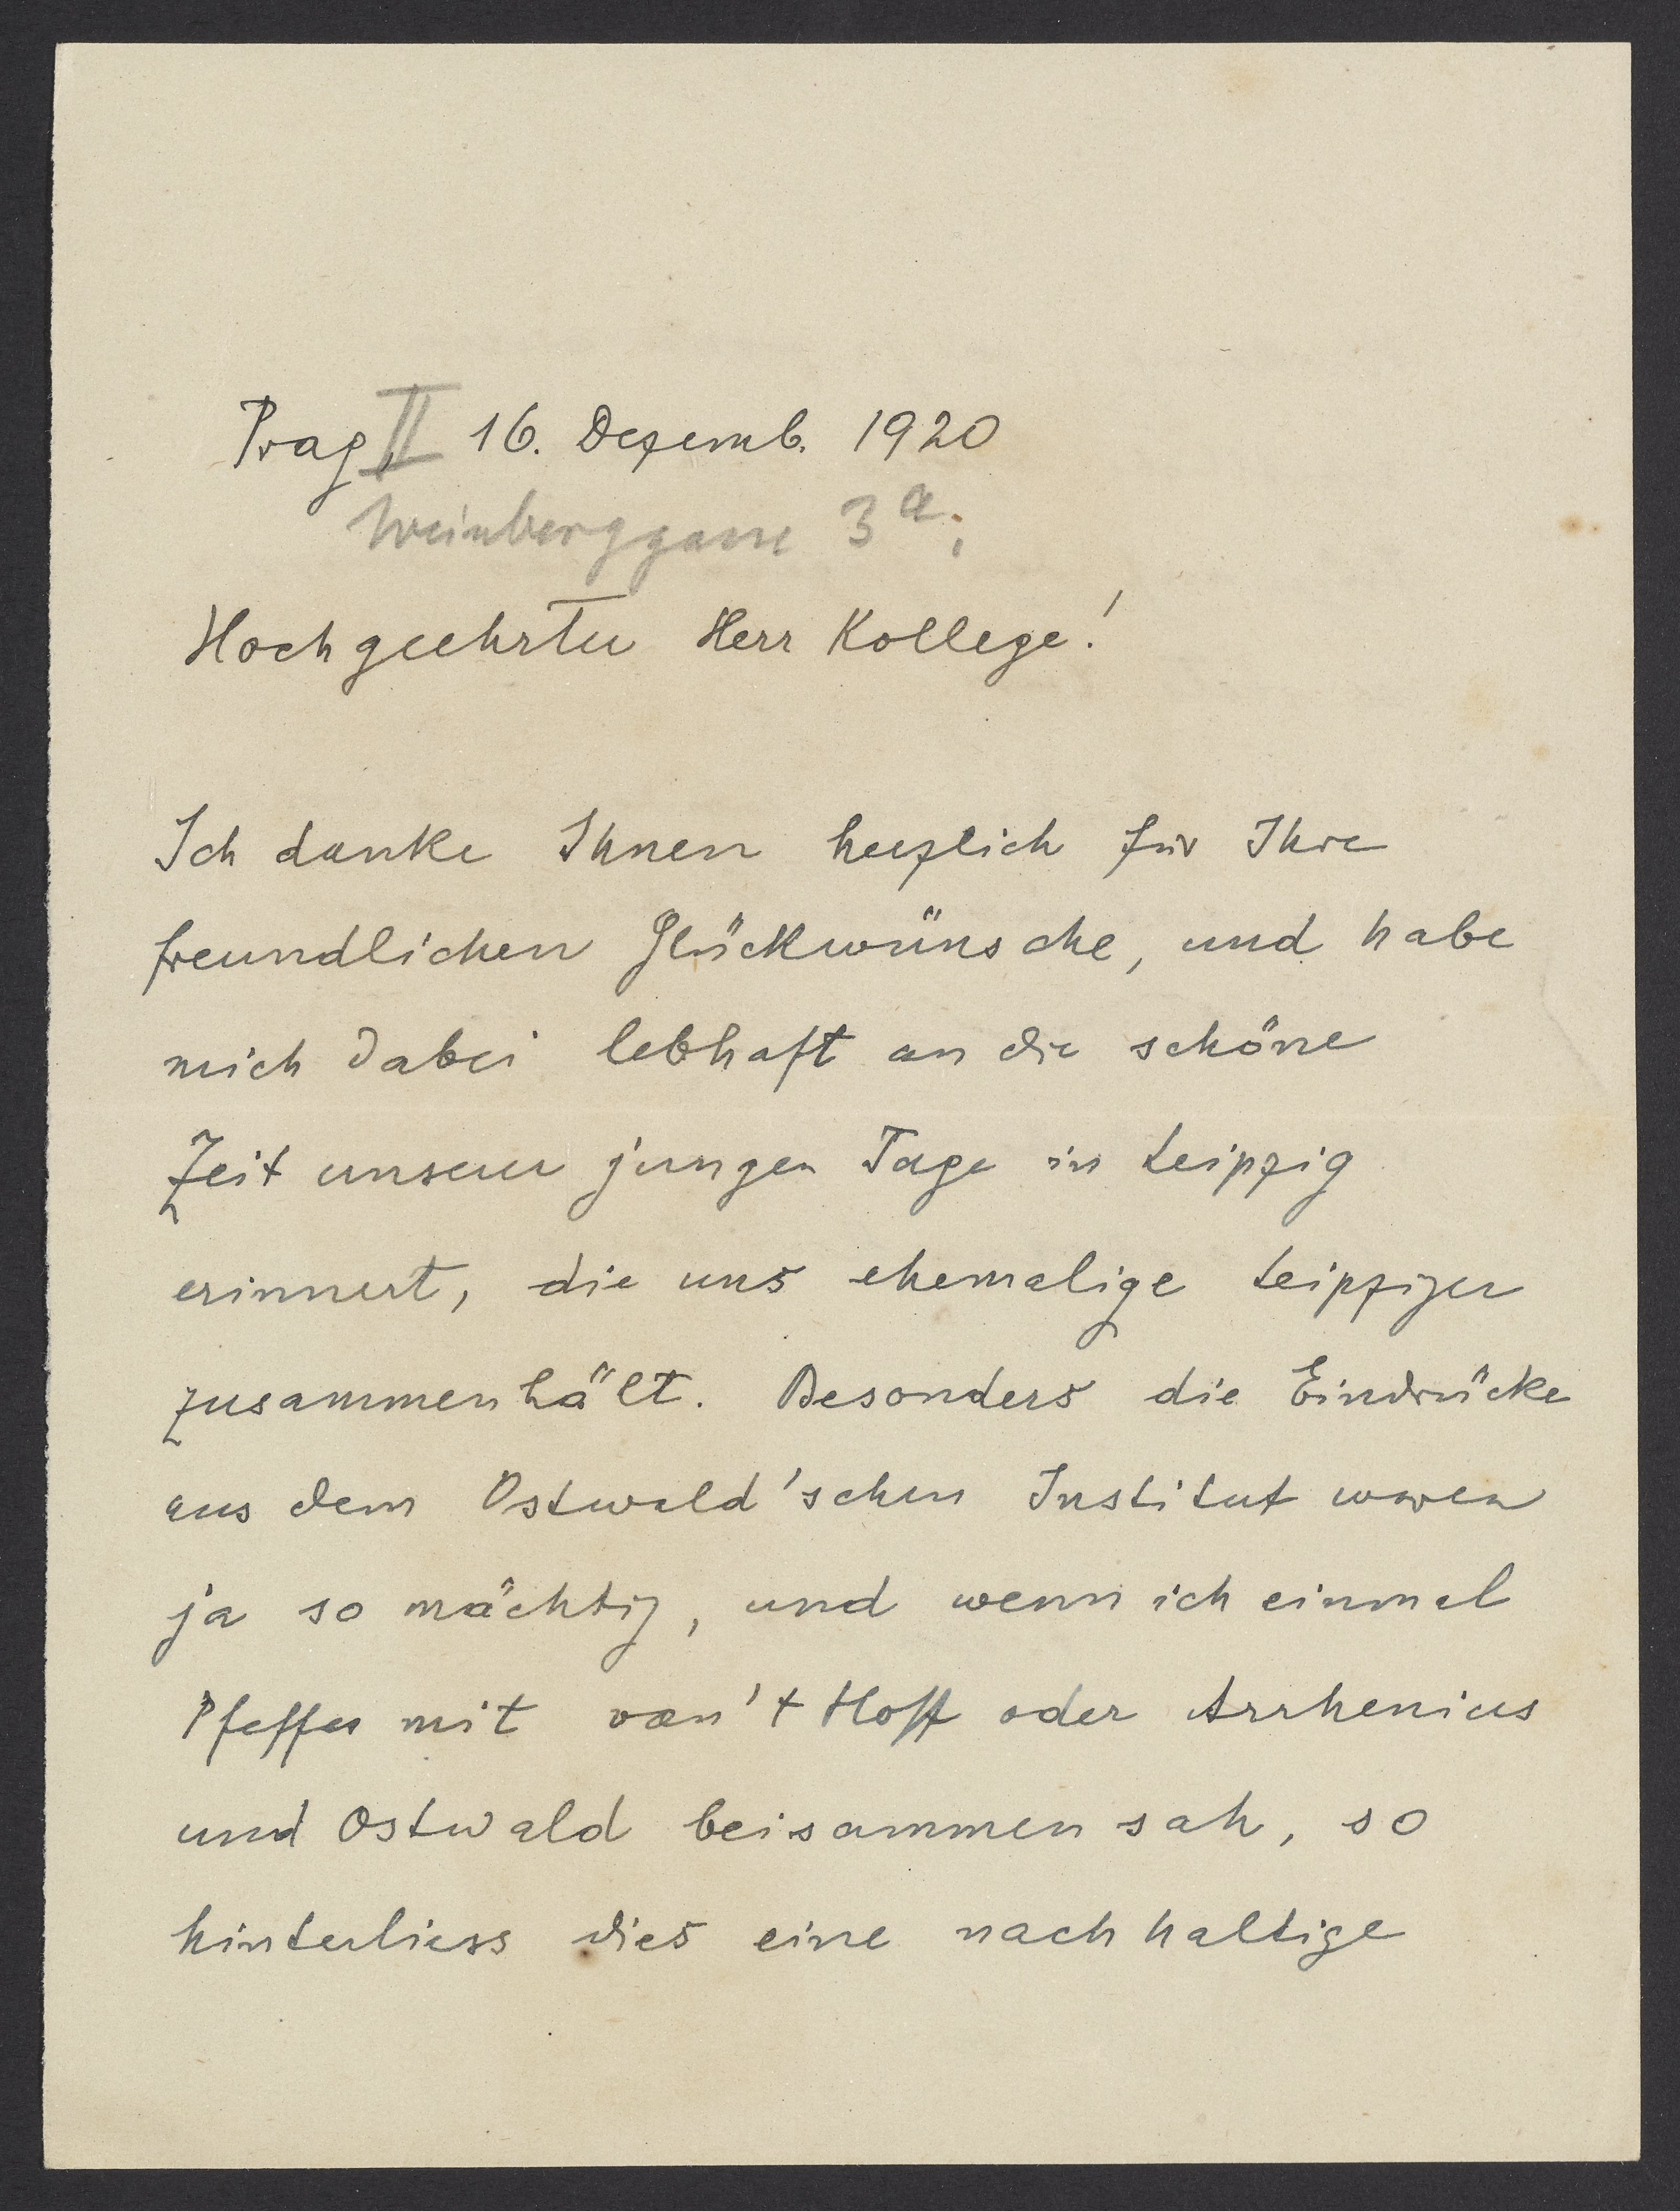 Prag, II 16. Dezemb. 1920
Weinberggasse 3a;
Hochgeehrter Herr Kollege!
Ich danke Ihnen herzlich für Ihre
freundlichen Glückwünsche, und habe
mich dabei lebhaft an die schöne
Zeit unserer jungen Tage in Leipzig
erinnert, die uns ehemalige Leipziger
zusammenhält. Besonders die Eindrücke
aus dem Ostwald'schen Institut waren
ja so mächtig, und wenn ich einmal
Pfeffer mit van't Hoff oder Arrhenius
und Ostwald beisammen sah, so
hinterliess dies eine nachhaltige